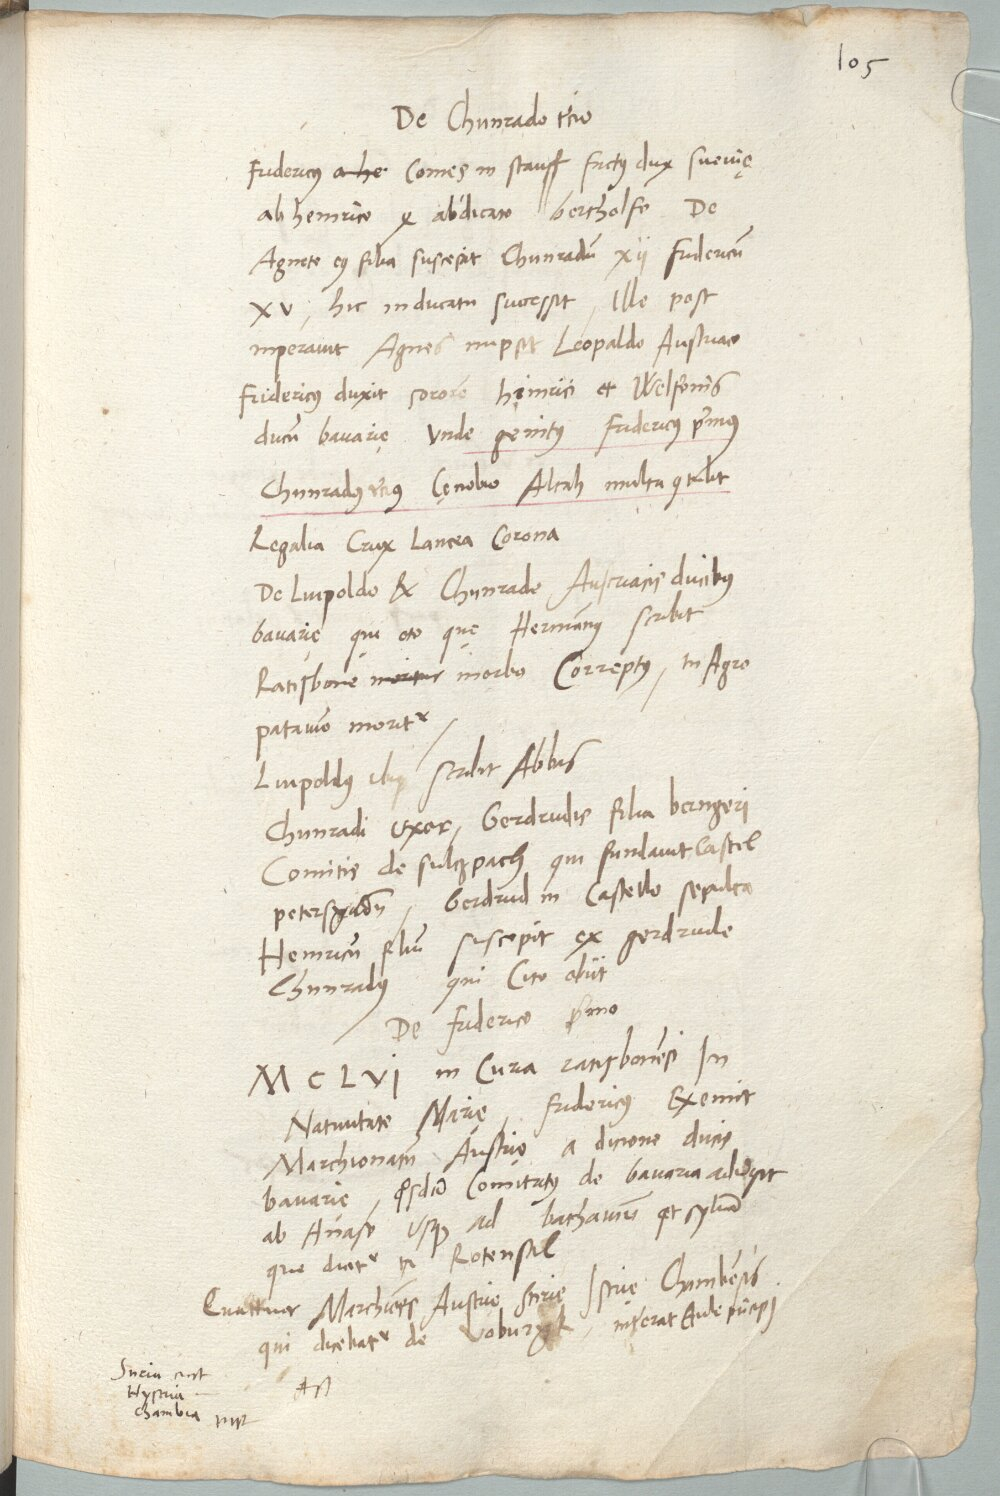 105
De Chunrado t'cio
Fridericus a he Comes in stauff fact9 dux suevię
ab heinrico abdicato bertholfo De
Agnete ei9 filia suscepit Chunradū xij Fridericū
XV, hic in ducatu successit, Ille post
imperavit Agnes nupsit Leopaldo Austriaco
Fridericus duxit sororē heinrici et Welfonis
ducū bavarię Unde genitus Fridericus p'mus
Chunradus t'ci9 Cęnobio Altah multa 9tulit
Regalia Crux Lancea Corona
De Luipoldo & Chunrado Austriacis ducibus
bavarię qui oto quę Hermann9 scribit
Ratisbone moritur morbo Correptus, in Agro
patavio morit'
Luipoldus scribit Abbas
Chunradi uxor, Gerdrudis filia berngeri
Comitis de sulczpach qui fundavit Castel
peters, Gerdrud in Castello sepulta
Heinricū filiū suscepit ex gerdrude
Chunradus qui Cito obiit
De Friderico p'mo
MCLVI in Curia ratisbonēsi In
Nativitate Marię, Fridericus Exemit
Marchionatū Austrie a dicione ducis
bavarię, Comitatus de bavaria adiecit
ab Anaso usq3 ad bathaviū et sylvā
que dicit' Rotensal
Quattuor Marchiōes Austrie Stirie Istrie Chambēsis
qui dicebat' de Voburgk,
Stiria
Hystria
Chambia